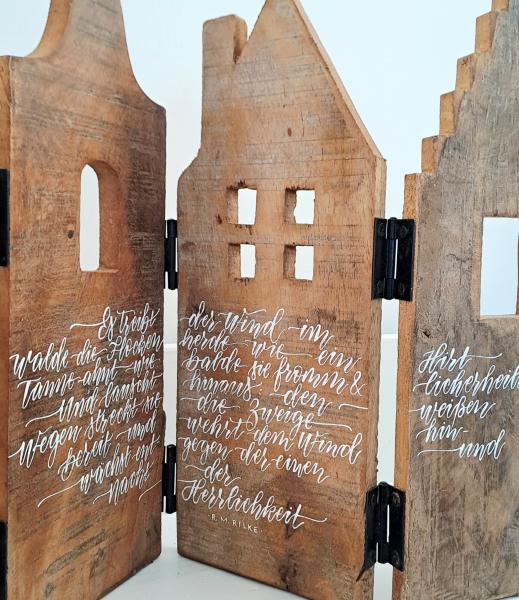 Es treibt
walde die Flocken
Tanne ahnt wie
Und lauscht
Wegen streckt sie
bereit und
wächst ent
nacht
der Wind im
herde wie ein
balde sie fromm &
hinaus, den
die Zweige
wehrt dem Wind
gegen der einen
der
Herrlichkeit
· R. M. RILKE ·
Hirt
weißen
hin-
und